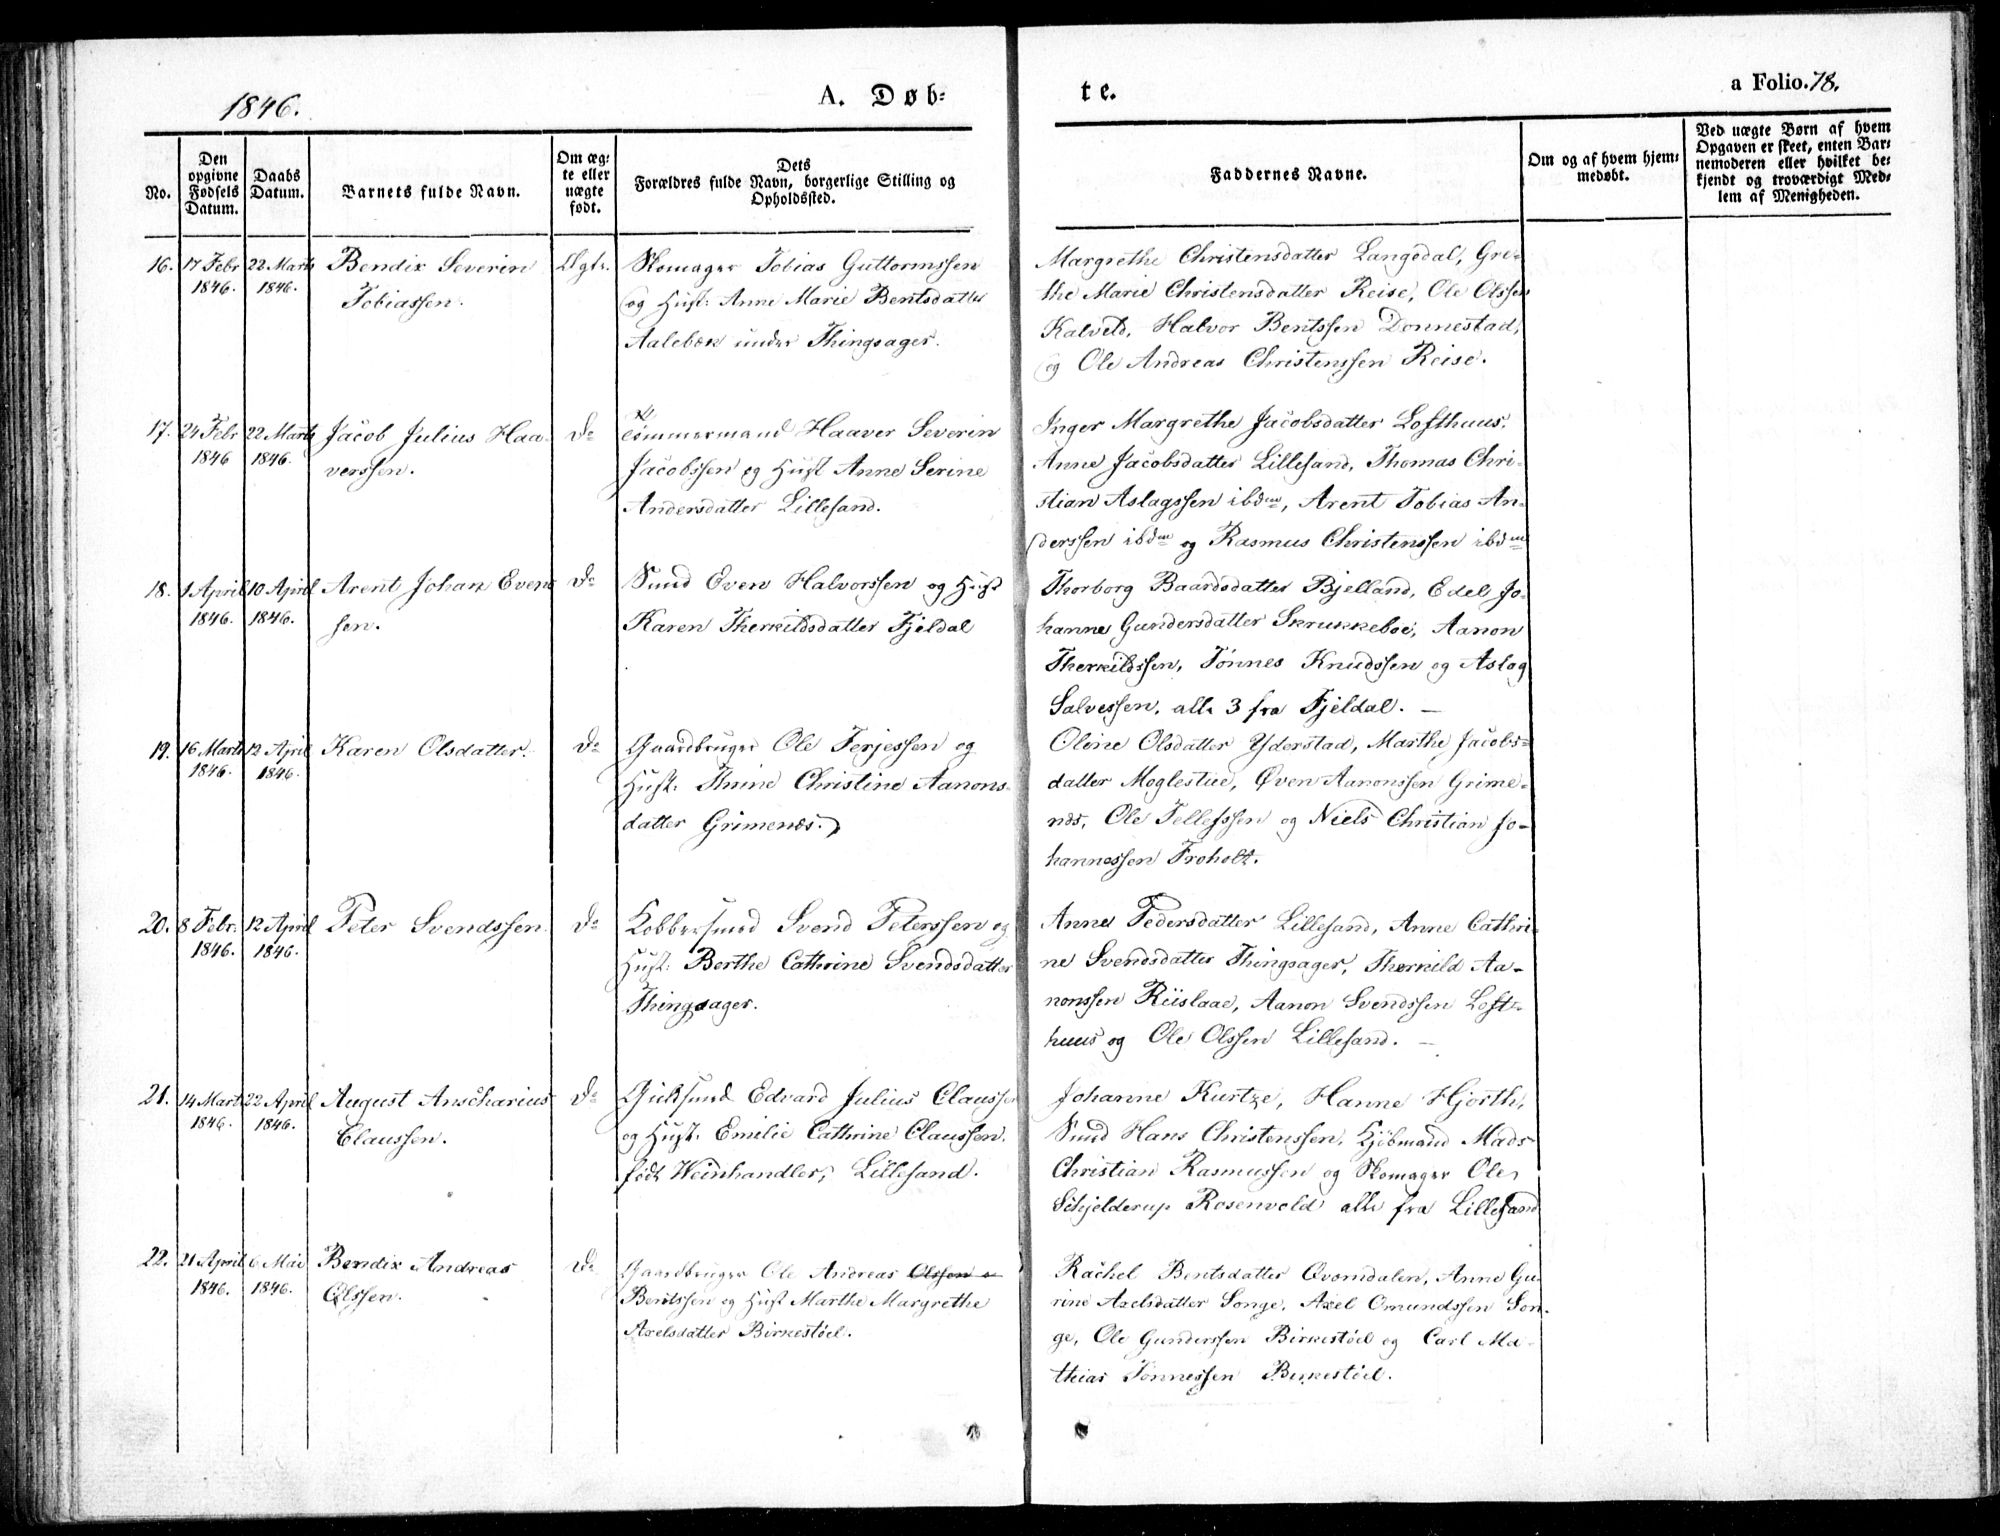 1846.
A. Døb-
te.
a Folio. 78.
No.
Den
opgivne
Fødsels
Datum.
Daabs
Datum.
Barnets fulde Navn.
Om æg-
te eller
uægte
født.
Dets
Forældres fulde Navn, borgerlige Stilling og
Opholdssted.
Faddernes Navne.
Om og af hvem hjem-
medøbt.
Ved uægte Børn af hvem
Opgaven er skeet, enten Bar-
nemoderen eller hvilket be-
kjendt og troværdigt Med-
lem af Menigheden.
16.
17 Febr
1846.
22 Marts
1846.
Bendix Severin
Tobiassen.
Ægte.
Skomager Tobias Guttormssen
og Hust: Anne Marie Bentsdatter
Aalebæk under Thingsager.
Margrethe Christensdatter Langedal, Gre-
the Marie Christensdatter Reise, Ole Olssen
Kalveld, Halvor Bentssen Donnestad,
og Ole Andreas Christenssen Reise.
17.
24 Febr
1846
22 Marts
1846.
Jacob Julius Haa-
verssen.
Do
Tømmermand Haaver Severin
Jacobssen og Hust Anne Serine
Andersdatter Lillesand.
Inger Margrethe Jacobsdatter Lofthuus.
Anne Jacobsdatter Lillesand, Thomas Chri-
stian Aslagssen ibdm, Arent Tobias An-
derssen ibdm og Rasmus Christenssen ibdm
18.
1 April
1846.
10 April
1846.
Arent Johan Even-
sen.
Do
Smed Even Halvorssen og Hust
Karen Therkildsdatter Fjeldal
Thorborg Baardsdatter Bjelland, Edel Jo-
hanne Gundersdatter Skrukkeboe, Aanon
Therkildssen, Tönnes Knudssen og Aslag
Salvessen, alle 3 fra Fjeldal. —
19.
16 Marts
1846.
12 April
1846.
Karen Olsdatter.
Do
Gaardbruger Ole Terjessen og
Hust: Thrine Christine Aanons-
datter Grimenes.
Oline Olsdatter Yderstad, Marthe Jacobs-
datter Moglestue, Øven Aanonssen Grime-
nes, Ole Tellefssen og Niels Christian Jo-
hannessen Froholt.
20.
8 Febr.
1846.
12 April
1846.
Peter Svendssen
Do
Kobbersmed Svend Peterssen og
Hust: Berthe Cathrine Svendsdatter
Thingsager.
Anne Pedersdatter Lillesand, Anne Cathri-
ne Svendsdatter Thingsager, Therkild Aa-
nonssen Riislaae, Aanon Svendssen Loft-
huus og Ole Olssen Lillesand. —
21.
14 Marts
1846.
22 April
1846.
August Anscharius
Claussen.
Do
Guldsmed Edvard Julius Claussen
og Hust. Emilie Cathrine Claussen.
født Weinhandler, Lillesand.
Johanne Kurtze, Hanne Hjorth,
Smed Hans Christenssen, Kjøbmand Mads
Christian Rasmussen og Skomager Ole
Schjelderup Rosenvold alle fra Lillesand
22.
21 April
1846.
6 Mai
1846.
Bendix Andreas
Olssen.
Do
Gaardbruger Ole Andreas Olssen o
Bentssen og Hust Marthe Margrethe
Axelsdatter Birkestöel.
Rachel Bentsdatter Qvomdalen, Anne Gu-
rine Axelsdatter Songe, Axel Omundssen Son-
ge, Ole Gunderssen Birkestöel og Carl Ma-
thias Tönnessen Birkestöel.